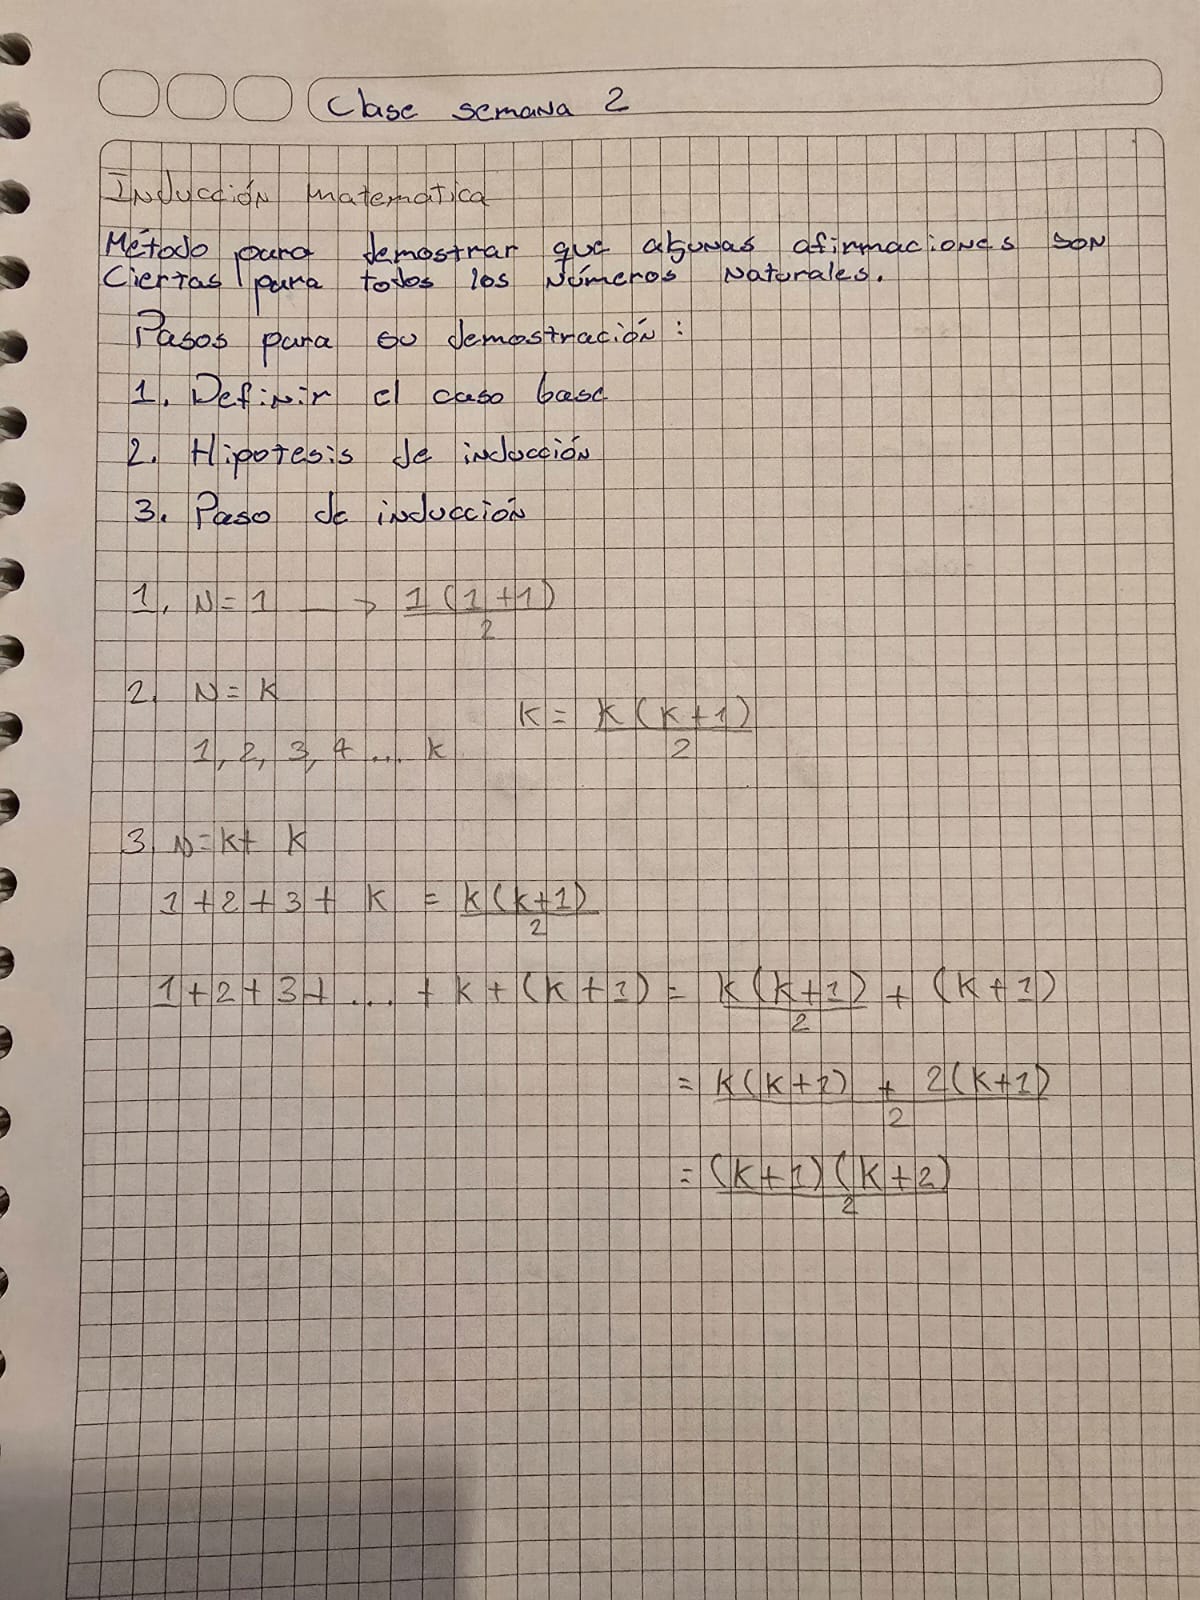 Clase semana 2
Inducción matematica
Método para demostrar que algunas afirmaciones son
Ciertas para todos los números naturales.
Pasos para su demostración:
1. Definir el caso base
2. Hipotesis de inducción
3. Paso de inducción
1. N=1 —> 1(1+1)/2
2. N=K
K= K(K+1)/2
1, 2, 3, 4 ... K
3. N=K+ K
1+2+3+ K = K(K+1)/2
1+2+3+ ... + K+(K+1) = K(K+1)/2 + (K+1)
= K(K+1) + 2(K+1)/2
= (K+1)(K+2)/2